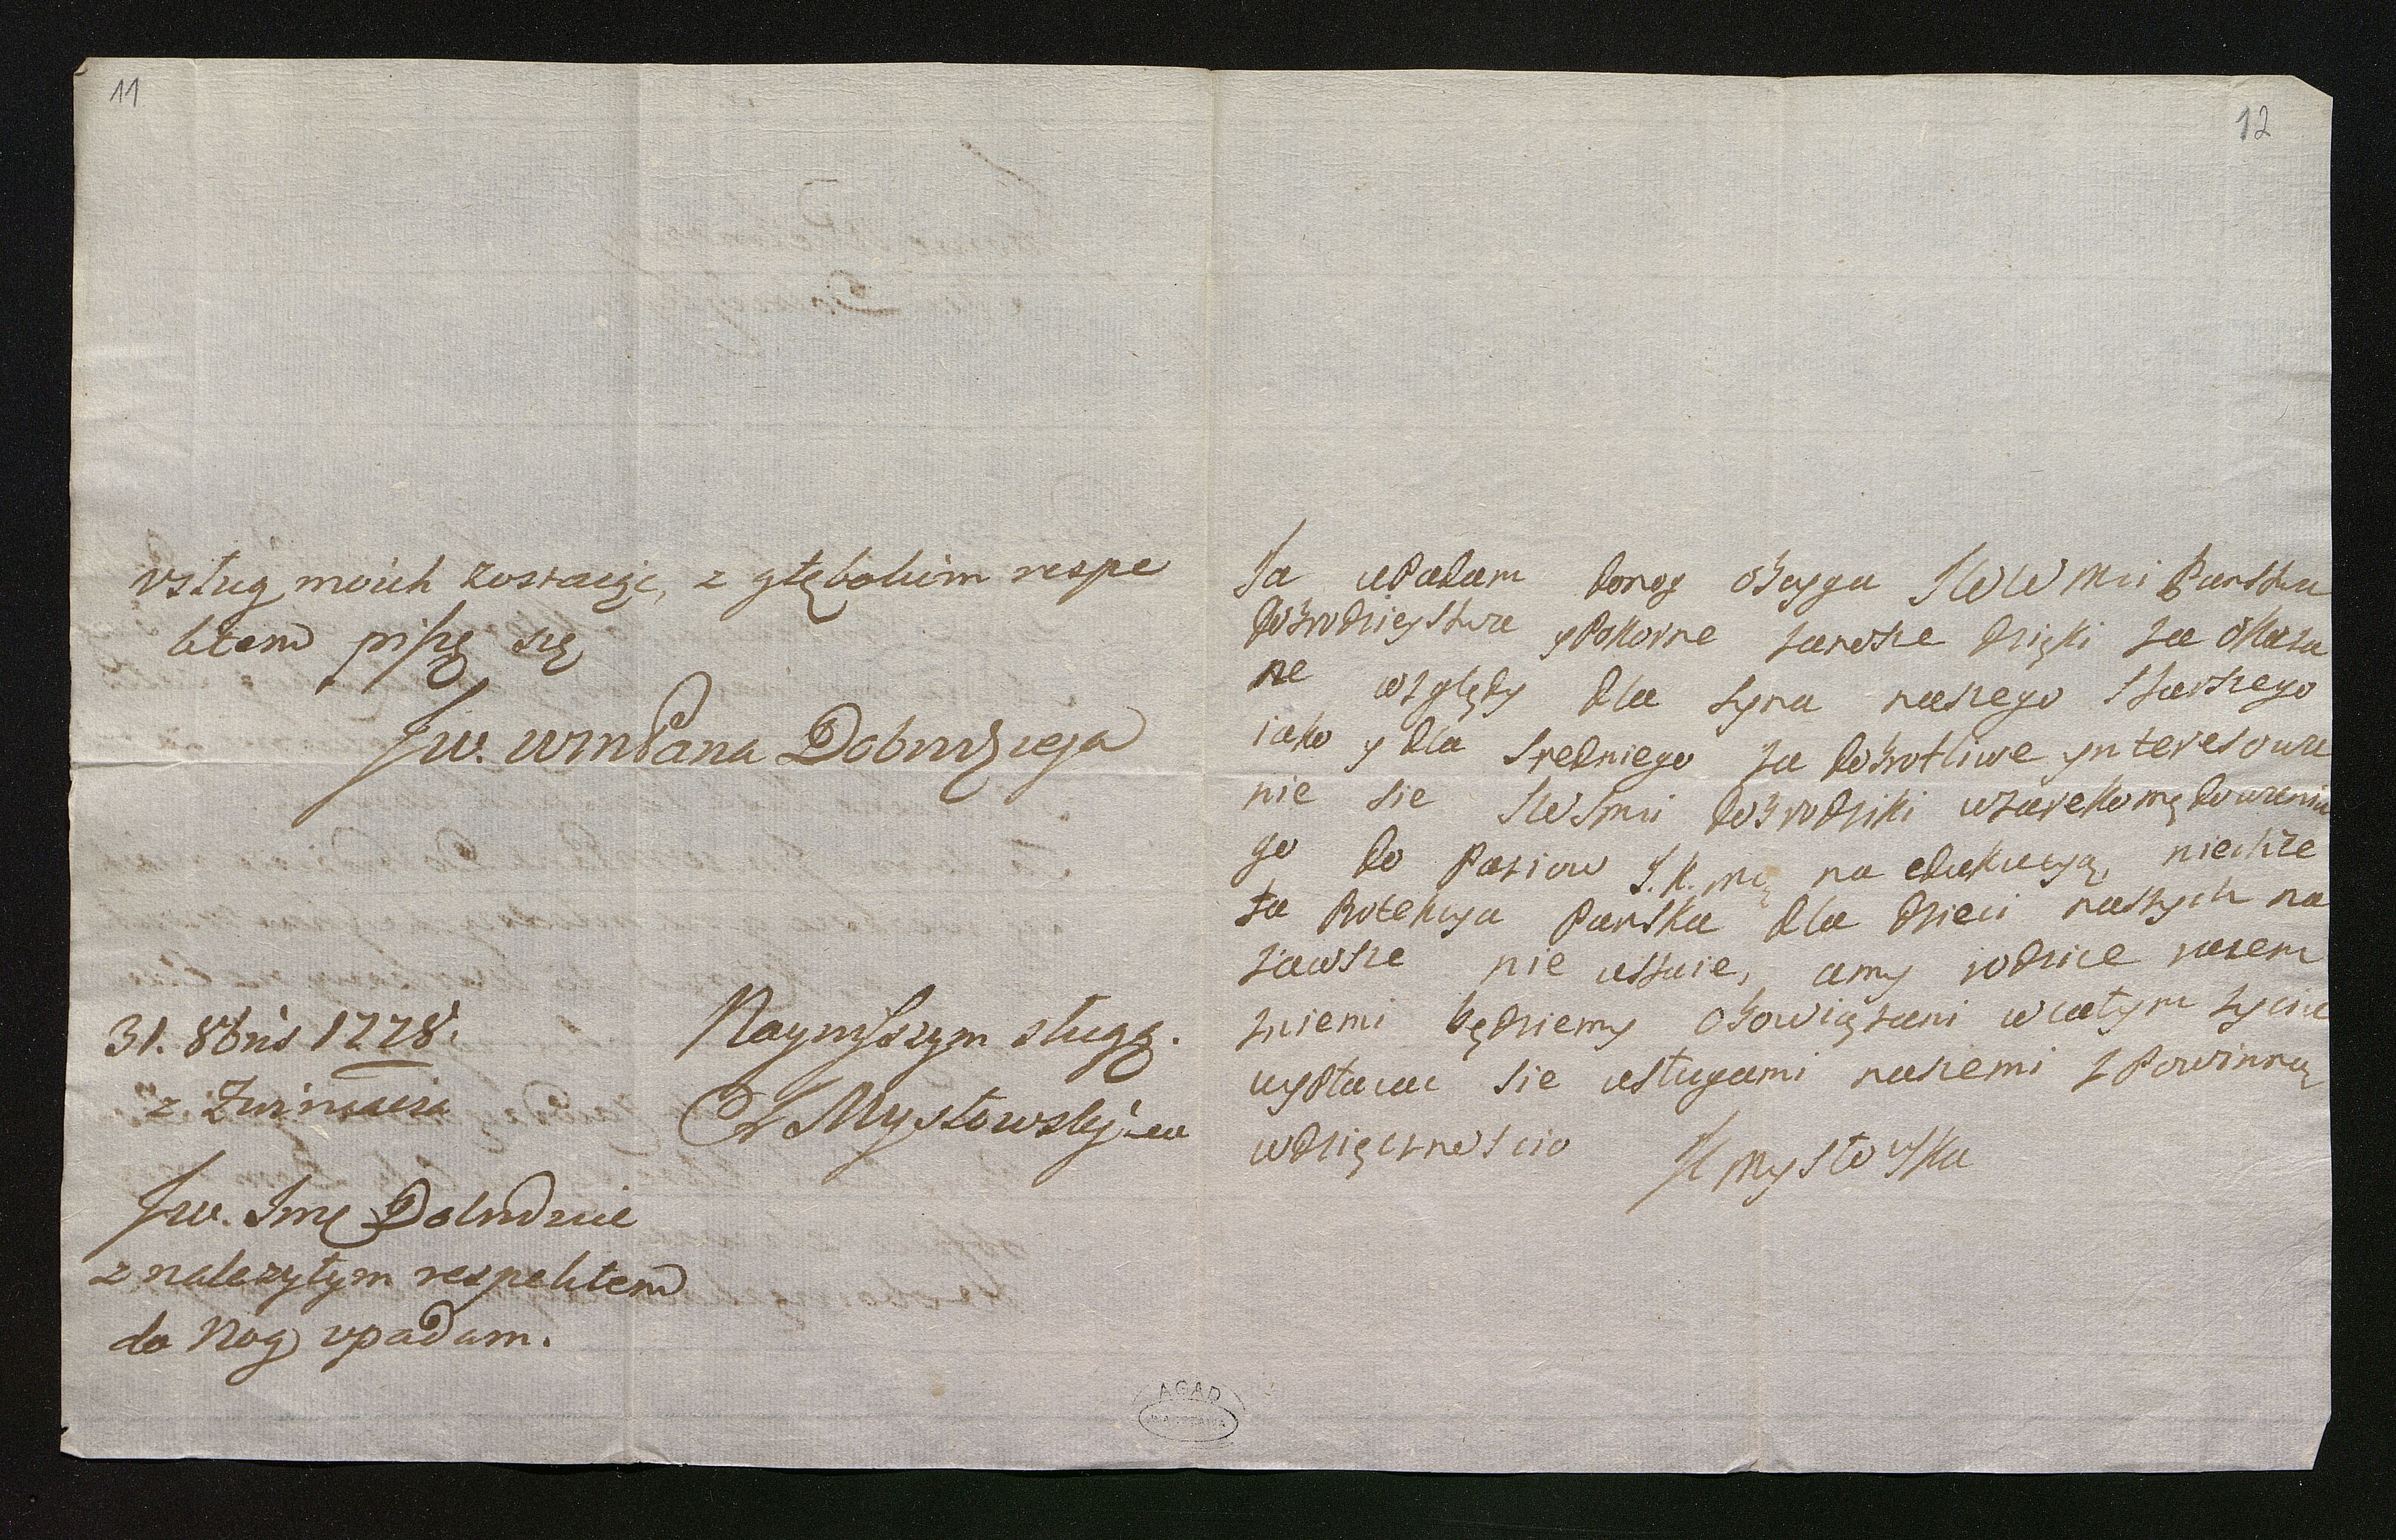 11
usług moich zostaiąc, z głębokim respe
ktem piszę się
Jw. WmPana Dobrodzieja
31. 8bris 1778.
z Zwiniacza
Nayniższym sługą.
Mysłowski
Jw. Imę Dobrodzice
z nalezytym respektem
do Nog upadam.
12
Ja upadam donog oboyga JWW mci Panstwa
dobrodzieystwa y pokorne zanosze dzięki za okaza
ne względy dla syna naszego starszego
iako y dla sredniego za dobrotliwe ynteresowa
nie sie JWJmci dobrodziki wzarekomędowaniu
go do Paziow J.K.mcę na edukacyą, niechze
ta Protekcya Panska dla dzieci naszych na
zawsze nie ustaie, amy rodzice razem
zniemi będziemy obowiązani wcałym zyciu
wypłacac sie usługami naszemi z Powinną
wdzięcznościo
Mysłowska
AGAD
WARSZAWA